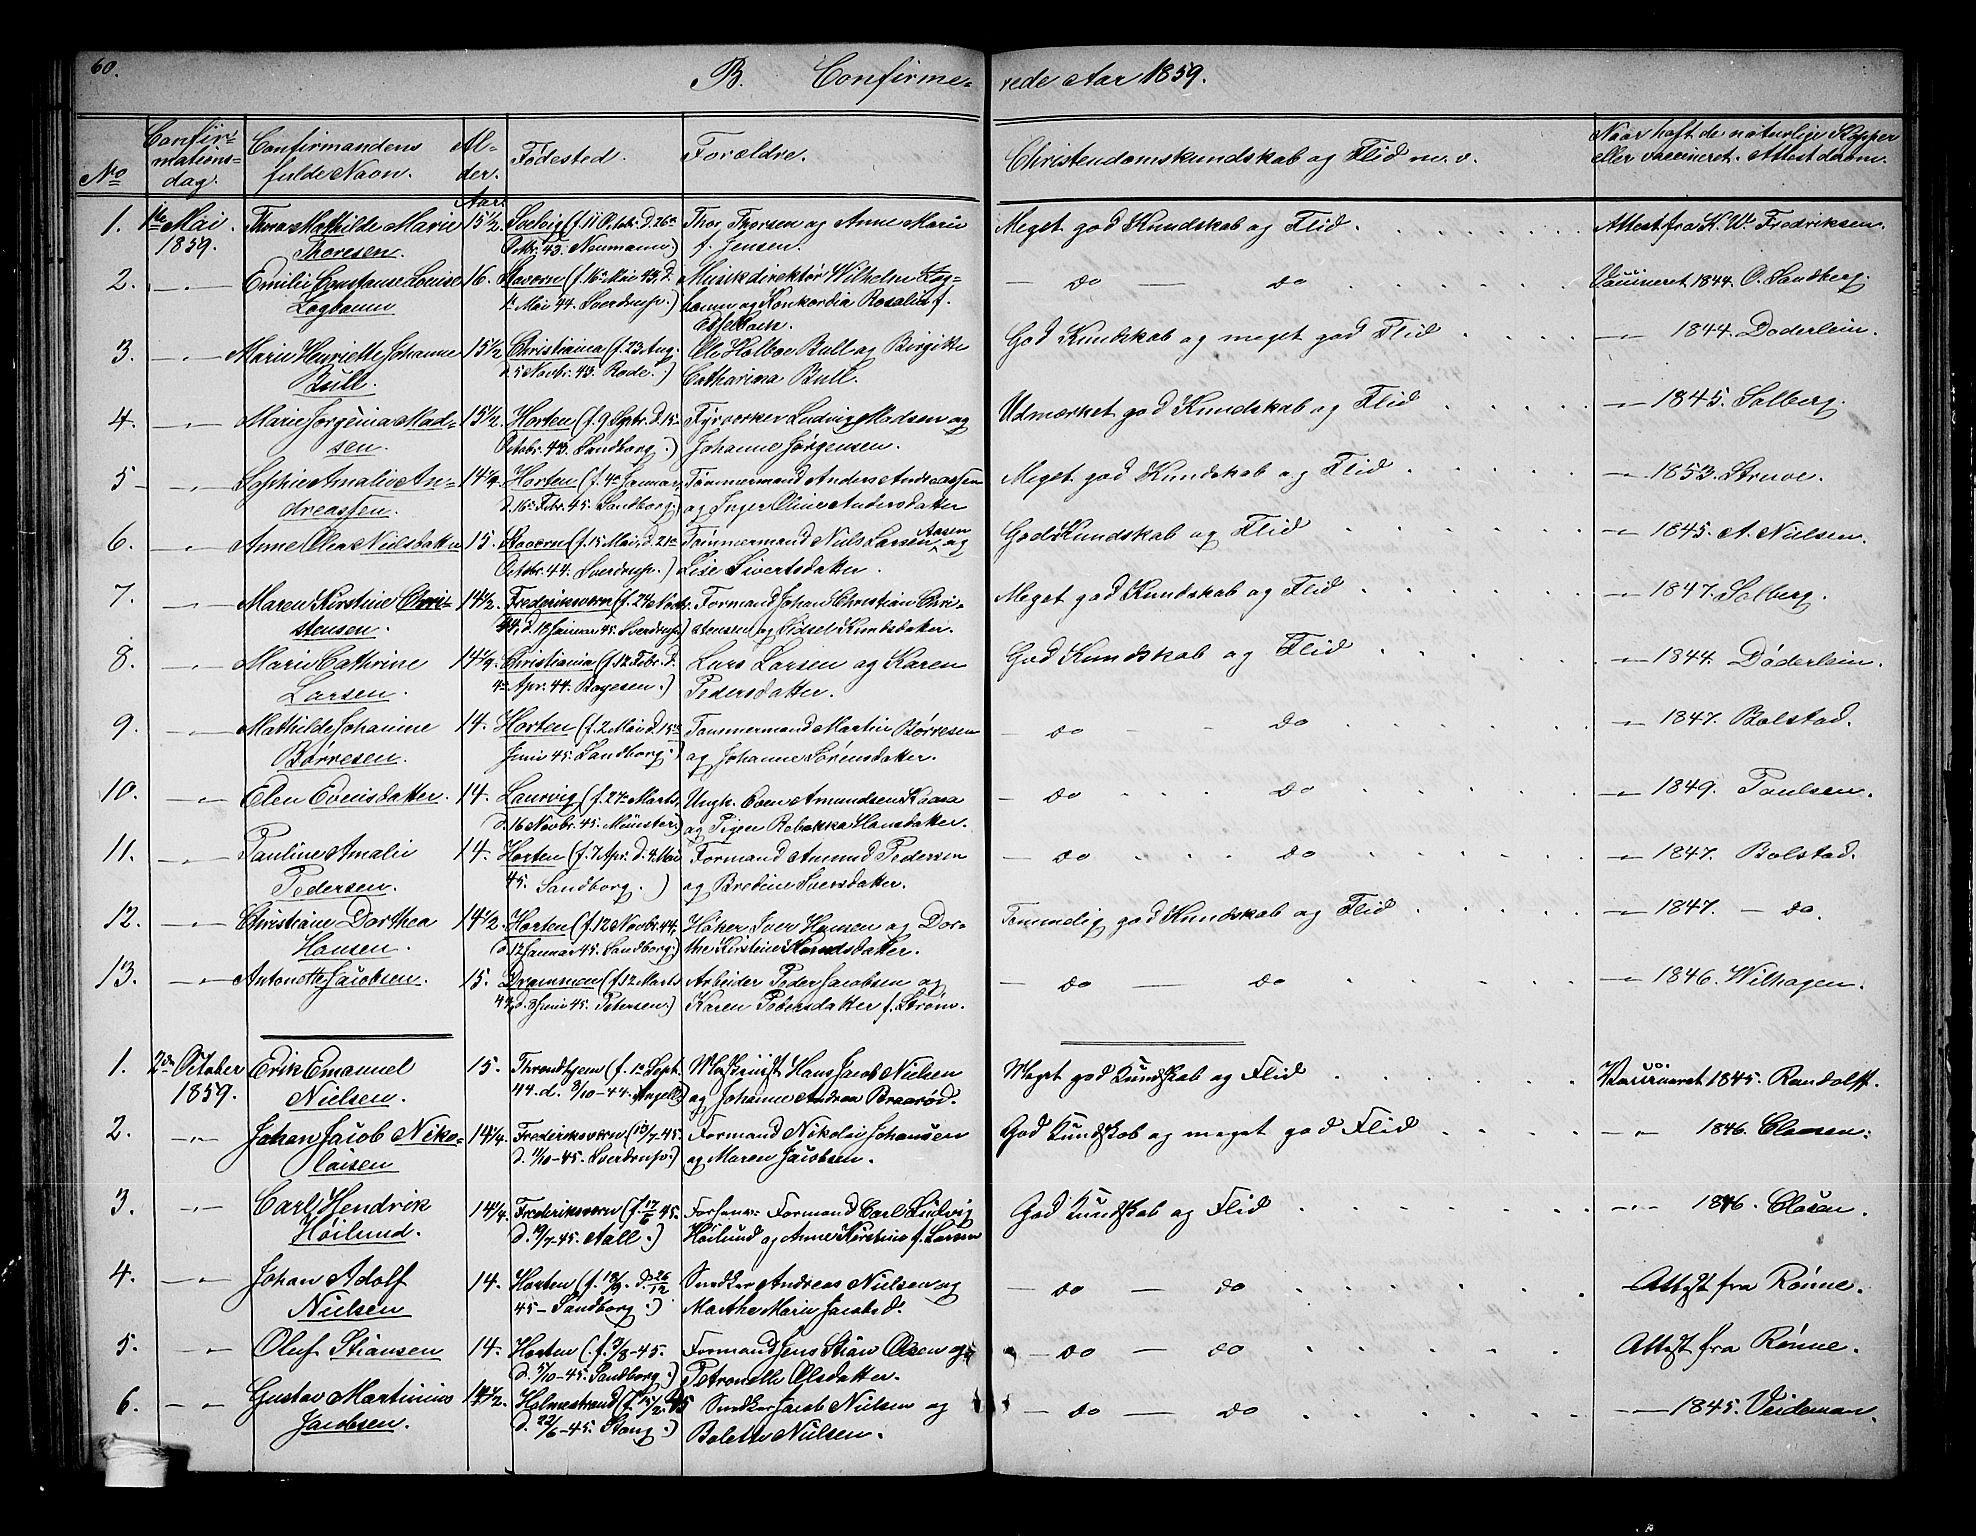 60.
B. Confirme-
rede Aar 1859.
No
Confir-
mations-
dag.
Confirmandens
fulde Navn.
Al-
der.
Aar.
Fødested.
Forældre.
Christendomskundskab og Flid m. v.
Naar haft de naturlige Kopper
eller vaccineret. Attest derom.
1. 1te Mai Thea Mathilde Marie 15 1/2 Solvig (f. 11 Octobr. d. 26de Thor Thorsen og Anne Marie Meget god Kundskab og Flid Attest fra K. W. Fredriksen.
1859. Thoresen Octbr. 43. Neumann.) f. Jensen.
2. —"— Emilie Constanse Louise 16. Stavern (f. 16de Mai 43. d. Musikdirektør Wilhelm Log- — do — do Vaccineret 1844. O. Sandberg.
Logbaum 1te Mai 44. Sverdrup.) baum og Konkordia Rosalie f.
3. —"— Marie Henriette Johanne 15 1/2 Christiania (f. 23 Aug. Ole Holboe Bull og Birgitte God Kundskab og meget god Flid —"— 1844. Døderlein.
Bull. d. 5 Novbr. 43. Rode.) Catharina Bull.
4. —"— Marie Jørgenia Mad- 15 1/2. Horten (f. 9 Sptr. d. 15de Fyrverker Ludvig Madsen og Udmærket god Kundskab og Flid —"— 1845. Solberg.
sen. Octobr. 43. Sandborg.) Johanne Jørgensen.
5 —"— Sophie Amalie An- 14 1/4. Horten (f. 4de Januar, Tømmermand Anders Andreassen Meget god Kundskab og Flid —"— 1853. Struve.
dreassen. d. 16de Febr. 45. Sandborg.) og Inger Oline Andersdatter
6. —"— Anne Olea Nielsdatter 15. Stavern (f. 15 Mai, d. 21de Tømmermand Niels Larsen Aasen og God Kundskab og Flid —"— 1845. A. Nielsen.
Octobr. 44. Sverdrup.) Lise Sivertsdatter.
7. —"— Maren Kirstine Chri- 14 1/2. Frederiksværn (f. 24 Novbr. Formand Johan Christian Chri- Meget god Kundskab og Flid —"— 1847. Solberg.
stensen. 44, d. 12 Januar 45. Sverdrup.) stensen og Sidsel Knudsdatter.
8. —"— Marie Cathrine 14 1/4. Christiania (f. 12 Febr. d. Lars Larsen og Karen God Kundskab og Flid —"— 1844. Døderlein.
Larsen. 4de Apr. 44. Bagesen.) Pedersdatter.
9. —"— Mathilde Johanne 14. Horten (f. 2 Mai d. 15de Tømmermand Martin Børresen — do — do —"— 1847. Bolstad.
Børresen. Juni 45. Sandborg.) og Johanne Sørensdatter.
10. —"— Elen Evensdatter. 14. Laurvig (f. 27de Marts, Ungk. Even Amundsen Kaasa — do do —"— 1849. Paulsen.
d. 16 Novbr. 45. Münster.) og Pigen Rebekka Hansdatter.
11. —"— Pauline Amalie 14. Horten (f. 7 Apr. d. 4. Mai Formand Amund Pedersen — do do —"— 1847. Bolstad.
Pedersen. 45. Sandborg.) og Bredine Iversdatter.
12. —"— Christiane Dorthea 14 1/2. Horten (f. 12 Novbr. 44, Høker Iver Hansen og Dor- Temmelig god Kundskab og Flid —"— 1847. — do.
Hansen. d. 12 Januar 45. Sandborg.) the Kirstine Knudsdatter.
13. —"— Antonette Jacobsen. 15. Drammen (f. 12 Marts Arbeider Peder Jacobsen og — do — do —"— 1846. Wilhagen.
44, d. 3 Juni 45. Petersen.) Karen Pedersdatter f. Strøm.
1. 2den October Erik Emanuel 15. Throndhjem (f. 1te Septb. Maskinist Hans Jacob Nielsen Meget god Kundskab og Flid Vaccineret 1845. Randolff.
1859. Nielsen. 44. d. 8/10-44. Angell.) og Johanne Andrea Braarød.
2. —"— Johan Jacob Niko- 14 1/4. Frederiksværn (13/7-45. Formand Nikolai Johansen God Kundskab og meget god Flid —"— 1846. Clausen.
laisen d. 11/10-45. Sverdrup.) og Maren Jacobsen.
3. —"— Carl Hendrik 14 1/4. Frederiksværn (f. 17/6 45. Forhenv. Formand Carl Ludvig God Kundskab og Flid —"— 1846. Clausen.
Høilund. d. 19/7-45. Aall.) Høilund og Anne Kirstine f. Larsen
4. —"— Johan Adolf 14. Horten (f. 18/9. d. 26/12 Snedker Andreas Nielsen og — do — do Attest fra Rønne.
Nielsen 45 - Sandborg.) Marthe Marie Jacobsd.
5. —"— Oluf Stiansen 14. Horten (f. 3/8-45. Formand Jens Stian Olsen og — do — do Attest fra Rønne.
d. 5/10-45. Sandborg.) Petronelle Olsdatter.
6. —"— Gustav Martinius 14 1/2. Holmestrand (f. 15/2 45 Snedker Jacob Nielsen og — do — do —"— 1845. Veideman.
Jacobsen. d. 22/6-45. Stang.) Bolette Nielsen.